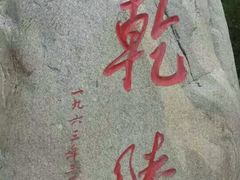 乾陵
一九六三年